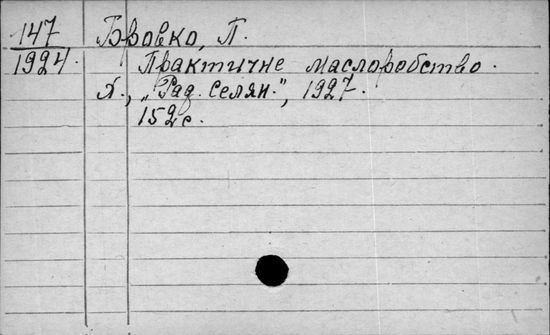 147 Бровко, П.
1924. Практичне маслоробство.
Х., „Рад. Селян.", 1927.
152с.